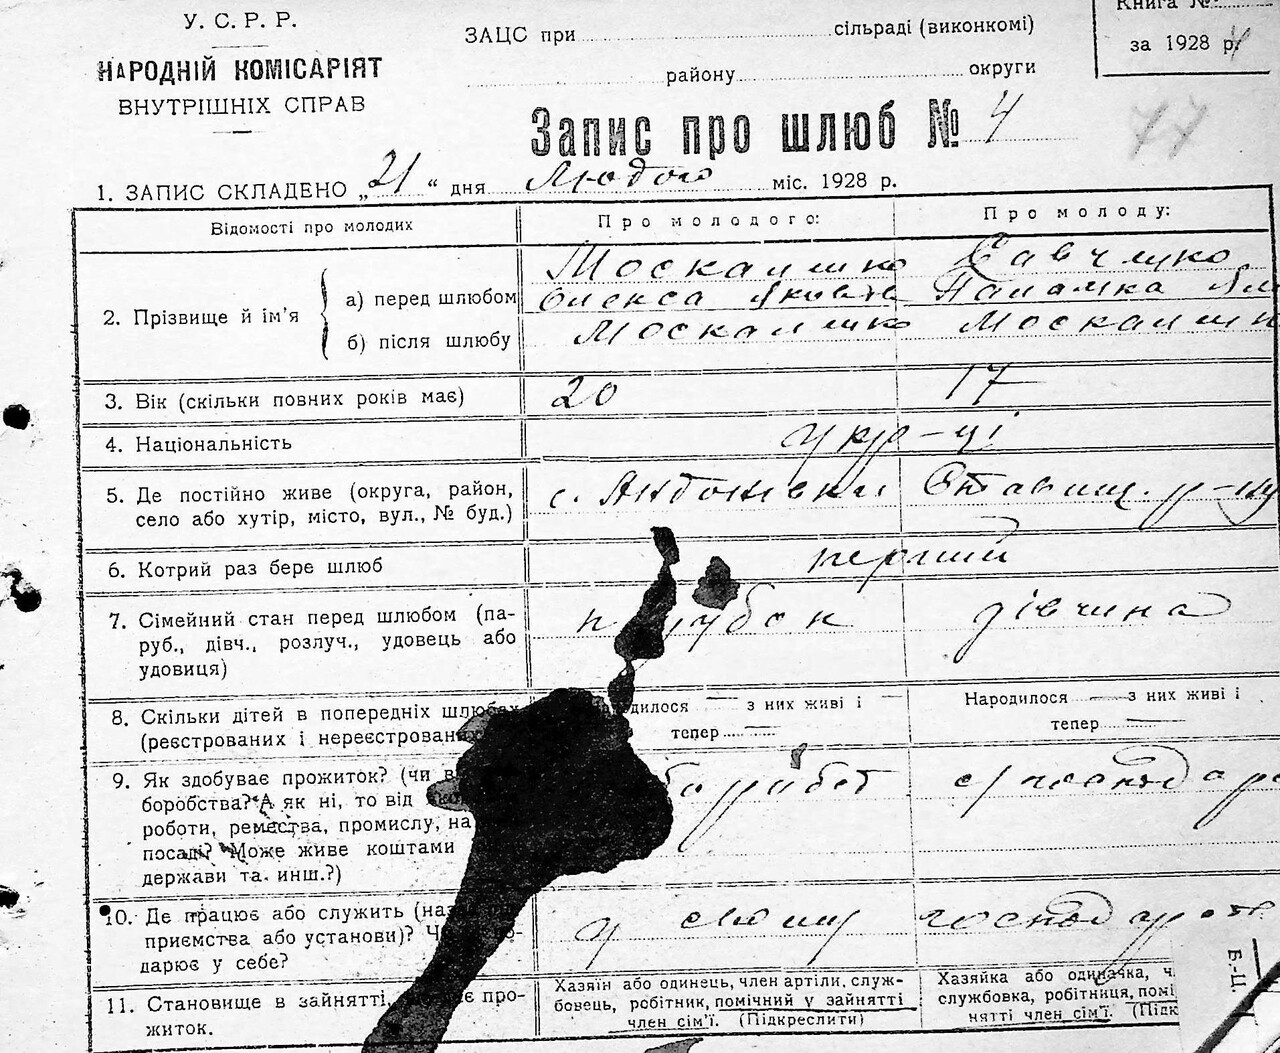 У. С. Р. Р.
НАРОДНІЙ КОМІСАРІЯТ
ВНУТРІШНІХ СПРАВ
ЗАЦС при сільраді (виконкомі)
району округи
Книга №
за 1928 р.
Запис про шлюб № 4
77
1. ЗАПИС СКЛАДЕНО „21“ дня Лютого міс. 1928 р.
Відомості про молодих
Про молодого:
Про молоду:
2. Прізвище й ім'я
а) перед шлюбом
Москаленко Савченко
Олекса
б) після шлюбу
Москаленко Москаленк
3. Вік (скільки повних років має)
20 17
4. Національність
укр-ці
5. Де постійно живе (округа, район,
село або хутір, місто, вул., № буд.)
с. Антонівки Ставищ. р-ну
6. Котрий раз бере шлюб
перший
7. Сімейний стан перед шлюбом (па-
руб., дівч., розлуч., удовець або
удовиця)
парубок дівчина
8. Скільки дітей в попередніх шлюбах
(реєстрованих і нереєстрованих
Народилося — з них живі і
тепер —
Народилося — з них живі і
тепер —
9. Як здобуває прожиток? (чи в
боробства? А як ні, то від
роботи, ремества, промислу, на
посаді? Може живе коштами
держави та инш.?)
10. Де працює або служить
приємства або установи)?
дарює у себе?
у своему господарств
11. Становище в зайнятті, про-
житок.
Хазяїн або одинець, член артіли, служ-
бовець, робітник, помічний у зайнятті
член сім'ї. (Підкреслити)
Хазяйка або одиначка, ч
службовка, робітниця, помі
нятті член сім'ї. (Підк